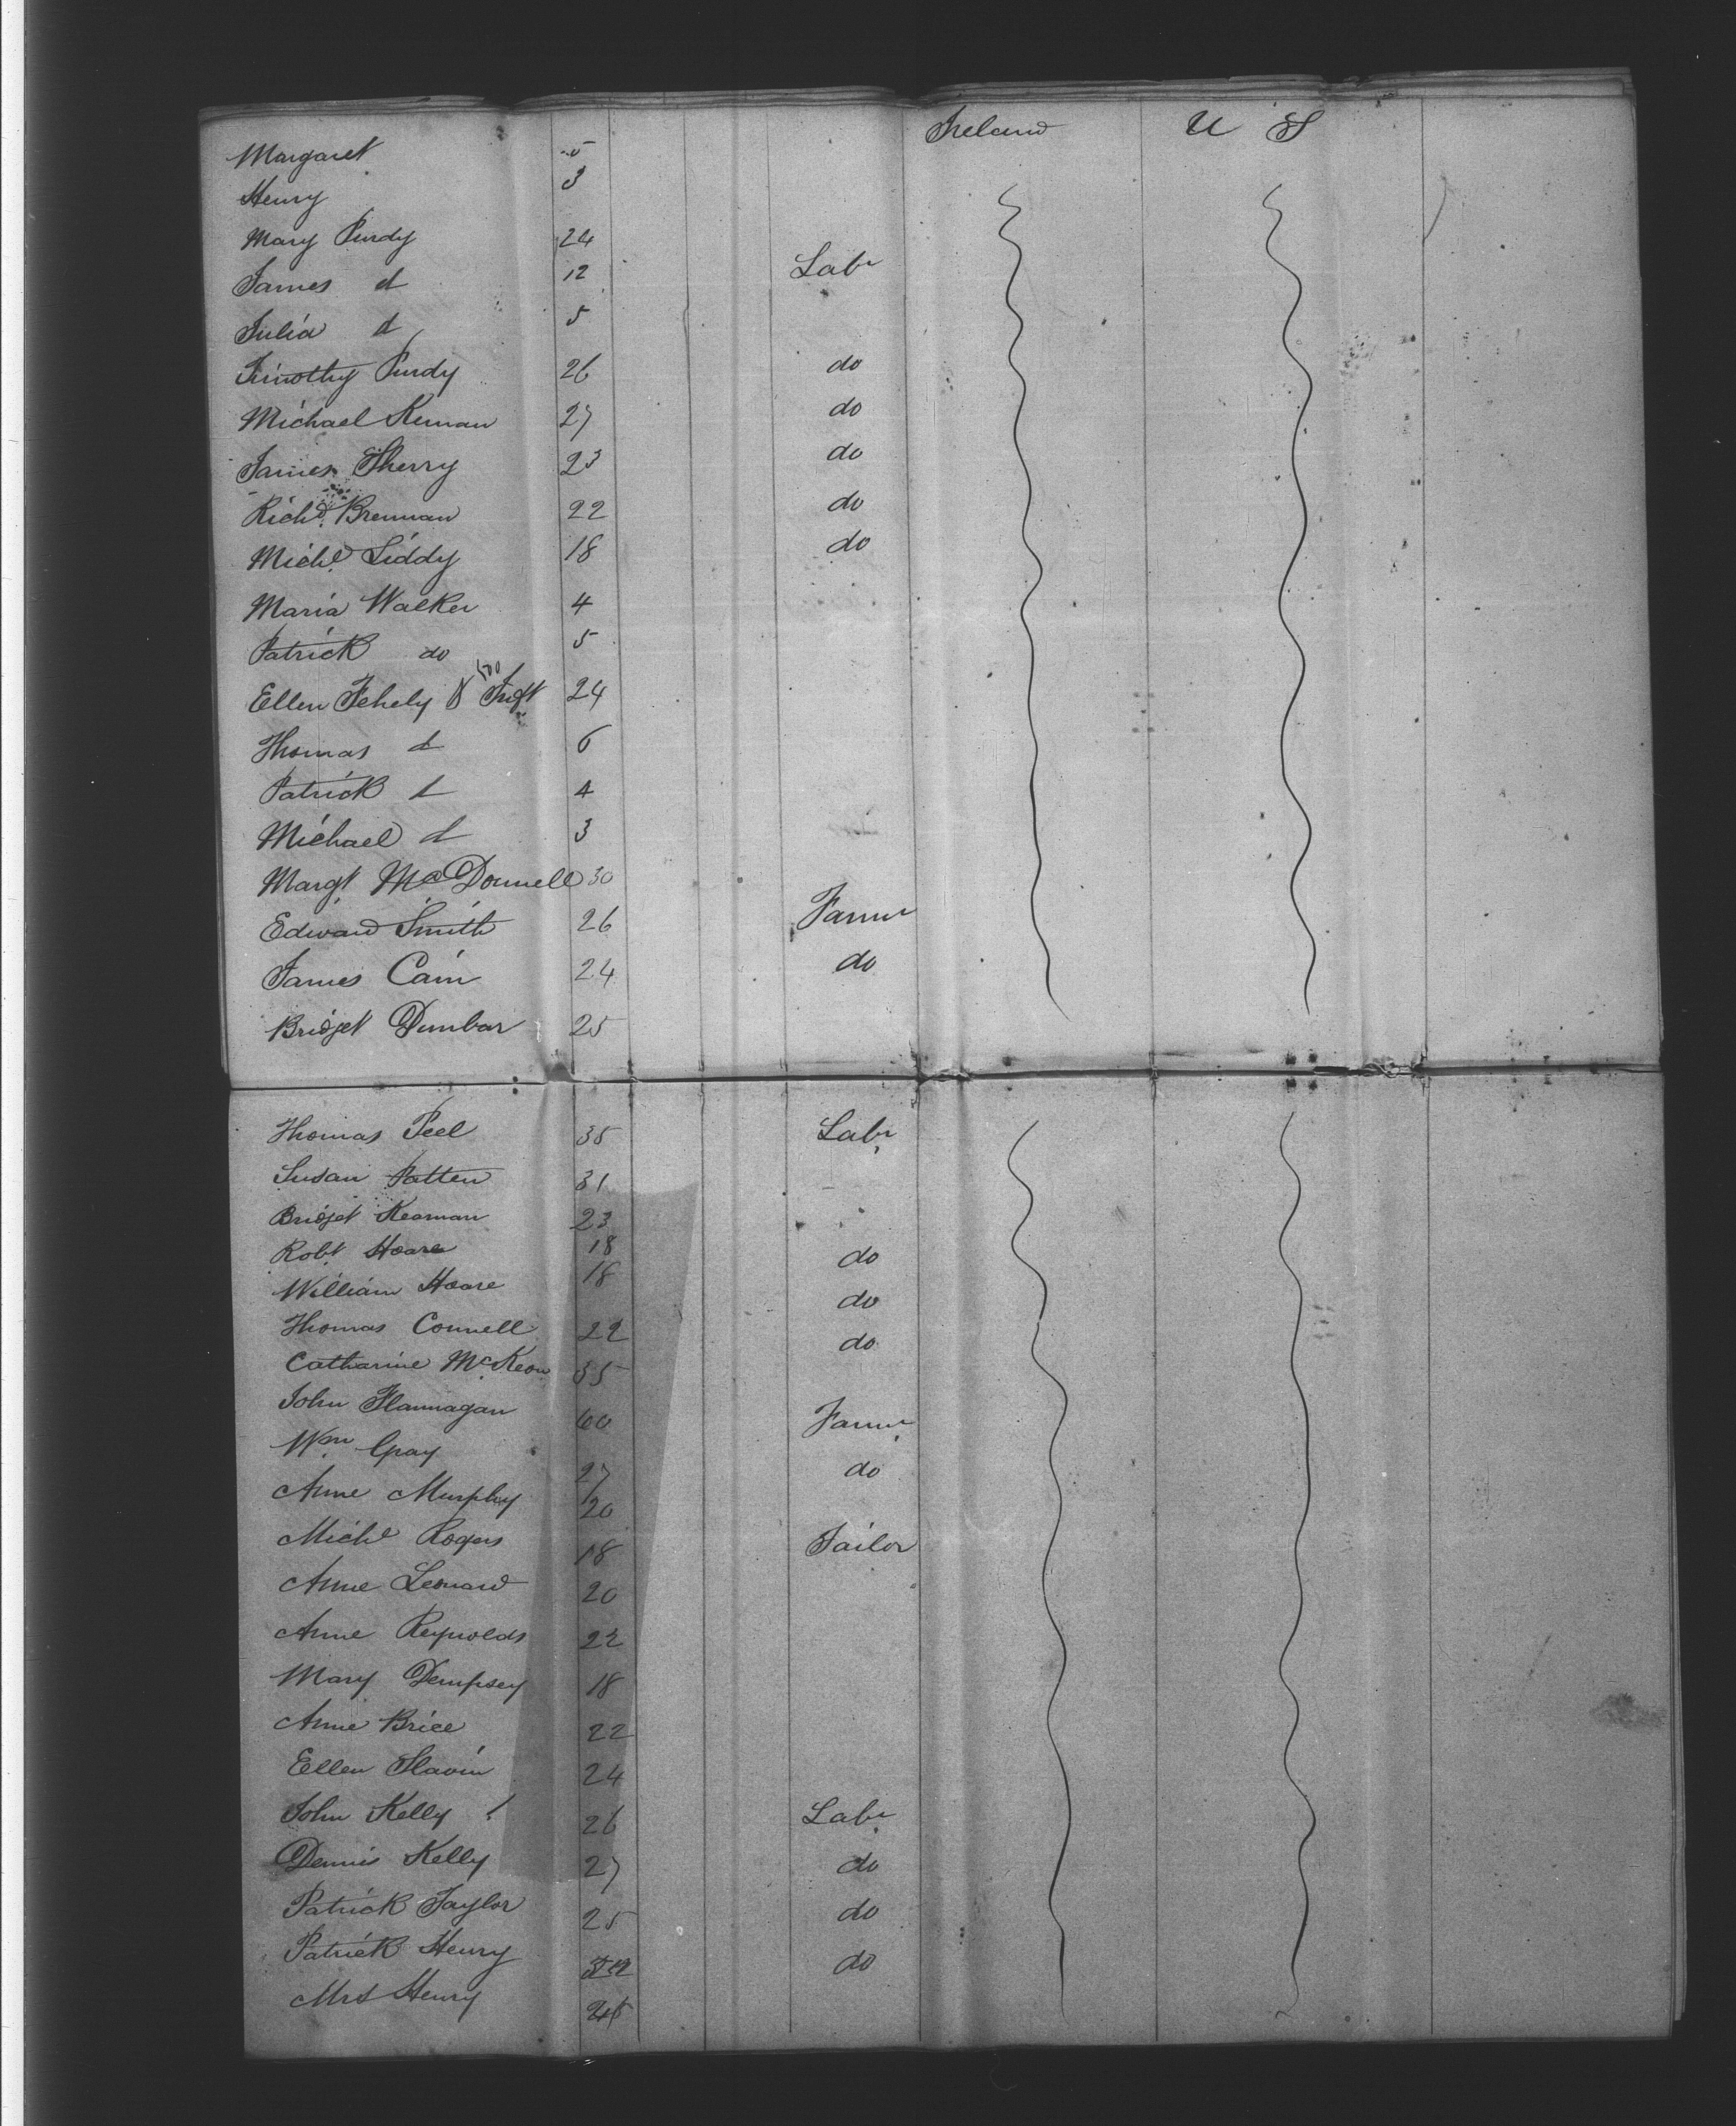 Ireland U S
Margaret 5
Henry 3
Mary Purdy 24
James d 12 Labr
Julia d 5
Timothy Purdy 26 do
Michael Kernan 27 do
James Sherry 23 do
Richd Brennan 22 do
Michl Liddy 18 do
Maria Walker 4
Patrick do 5
Ellen Fehely & Inft 24
Thomas d 6
Patrick d 4
Michael d 3
Margt McDonnell 30
Edward Smith 26 Farmr
James Cain 24 do
Bridget Dunbar 25
Thomas Peel 35 Labr
Susan Patten 31
Bridget Keoman 23
Robt Hoare 18 do
William Hoare 18 do
Thomas Connell 22 do
Catharine McKeon 35
John Flannagan 60 Farmr
Wm Gray 27 do
Anne Murphy 20
Michl Rogers 18 Tailor
Anne Leonard 20
Anne Reynolds 22
Mary Dempsey 18
Anne Brice 22
Ellen Slavin 24
John Kelly 26 Labr
Dennis Kelly 27 do
Patrick Taylor 25 do
Patrick Henry do
Mrs Henry